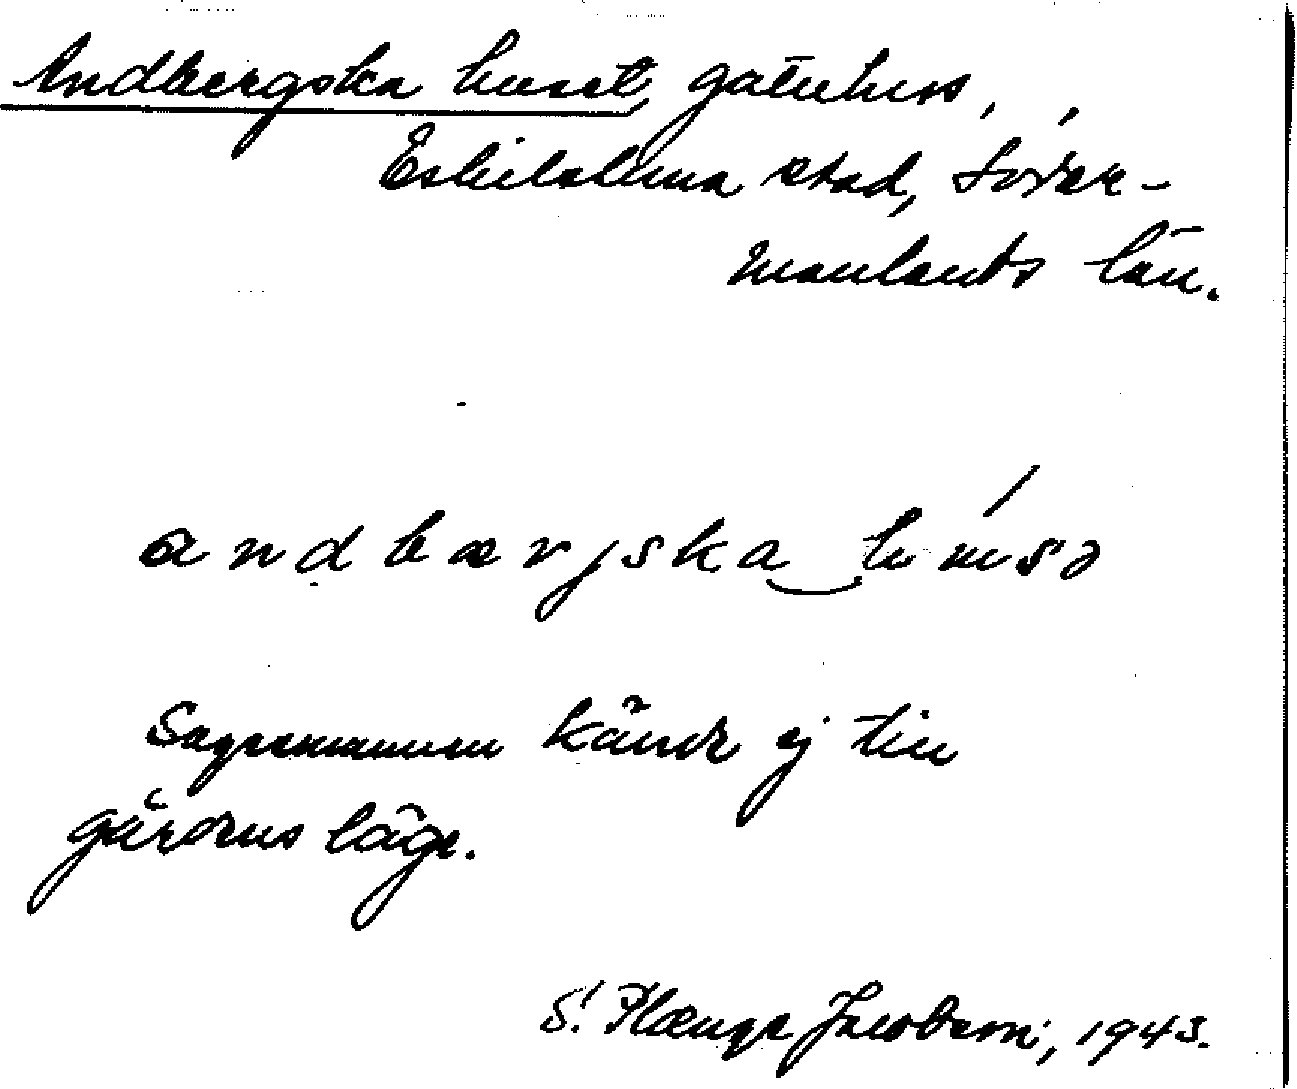 Andbergska huset, gatuhus,
Eskilstuna stad, Söder-
manlands län.
andbærjska‿hʉ́sə
Sagesmannen kände ej till
gårdens läge.
S. Plænge Jacobson, 1943.